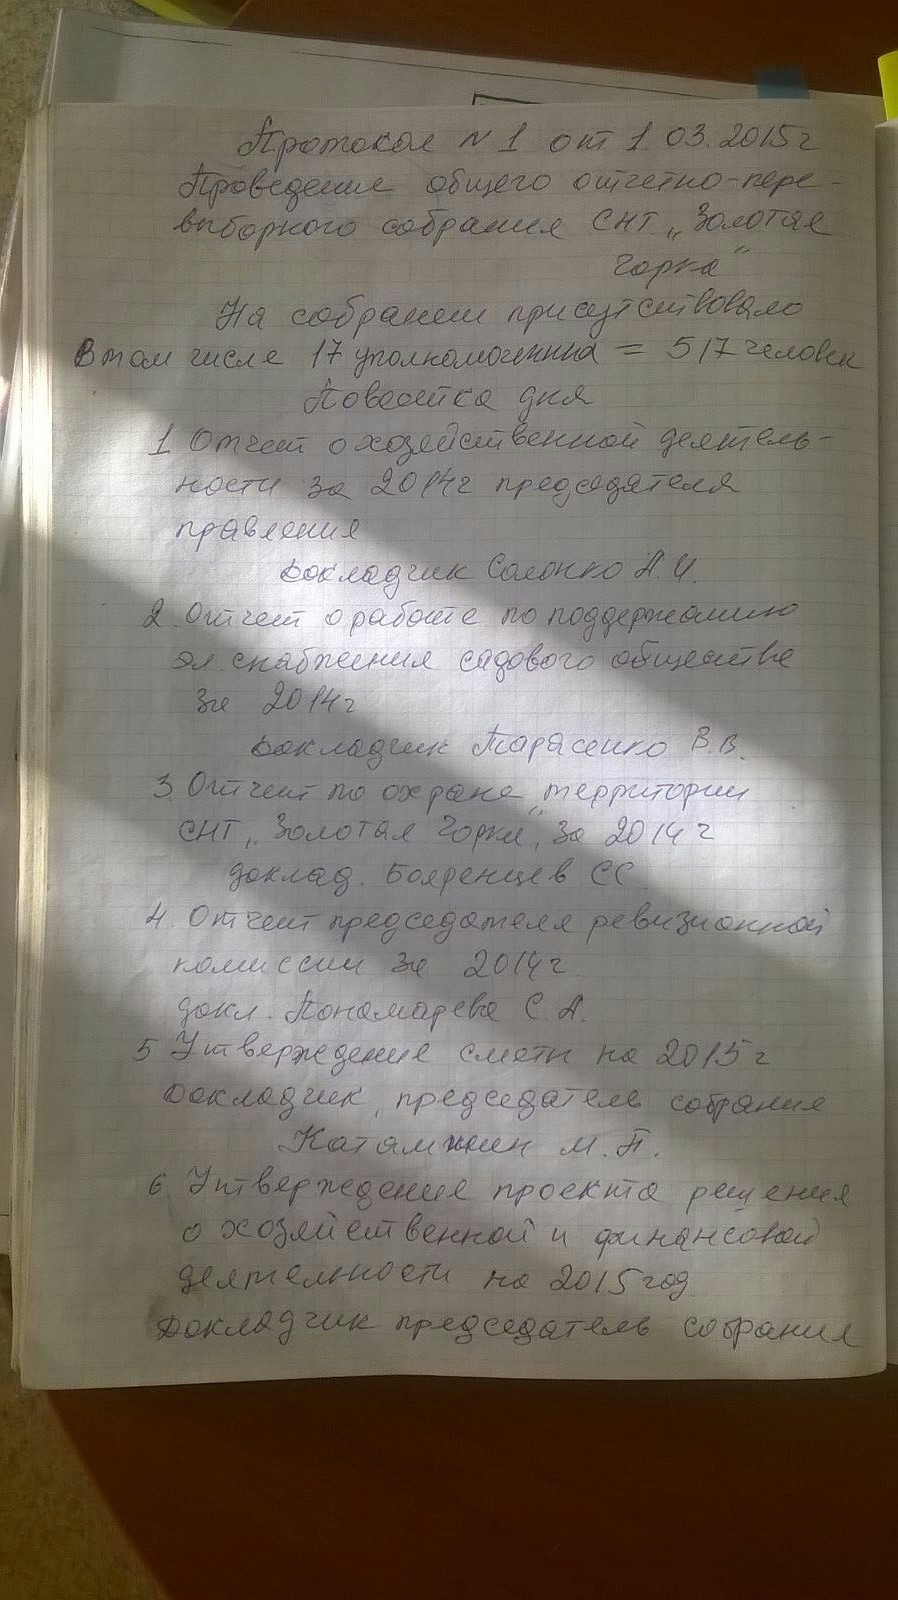 Протокол N 1 от 1.03.2015г
Проведения общего отчетно-пере-
выборного собрания СНТ „Золотая
Горка"
На собрании присутствовало
В том числе 17 уполномоченных = 517 человек
Повестка дня
1 Отчет о хозяйственной деятель-
ности за 2014г председателя
правления
Докладчик Солонко А.И.
2. Отчет о работе по поддержанию
эл. снабжения садового общества
за 2014г
Докладчик Тарасенко В.В.
3. Отчет по охране территории
СНТ „Золотая Горка" за 2014г
доклад. Бояренцев СС
4. Отчет председателя ревизионной
комиссии за 2014г.
докл. Пономарева С.А.
5 Утверждение сметы на 2015г
Докладчик, председатель собрания
М.П.
6 Утверждение проекта решения
о хозяйственной и финансовой
деятельности на 2015 год
Докладчик председатель собрания